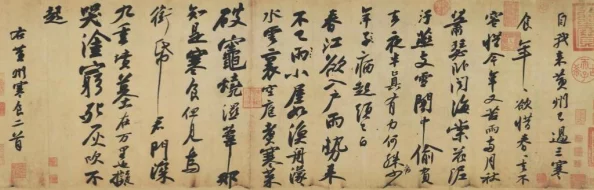 自我来黄州已過三寒
食年〻欲惜春〻去不
容惜今年又苦雨兩月秋
蕭瑟卧聞海棠花泥
汙燕支雪闇中偷負
去夜半真有力何殊少
年子病起頭已白
春江欲入户雨勢来
不已小屋如漁舟濛〻
水雲裏空庖煑寒菜
破竈燒濕葦那
知是寒食但見烏
銜帋君門深
九重墳墓在万里也擬
哭塗窮死灰吹不
起
右黄州寒食二首